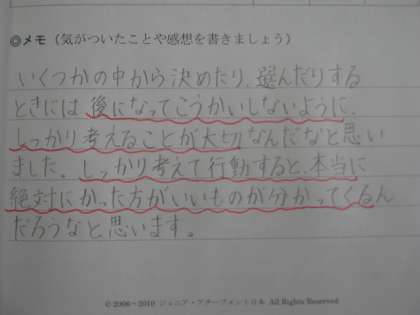 ◎メモ（気がついたことや感想を書きましょう）
いくつかの中から決めたり、選んだりする
ときには 後になってこうかいしないように、
しっかり考えることが大切なんだなと思い
ました。しっかり考えて行動すると、本当に
絶対にかった方がいいものが分かってくるん
だろうなと思います。
© 2006～2010 ジュニア・アチーブメント日本 All Rights Reserved